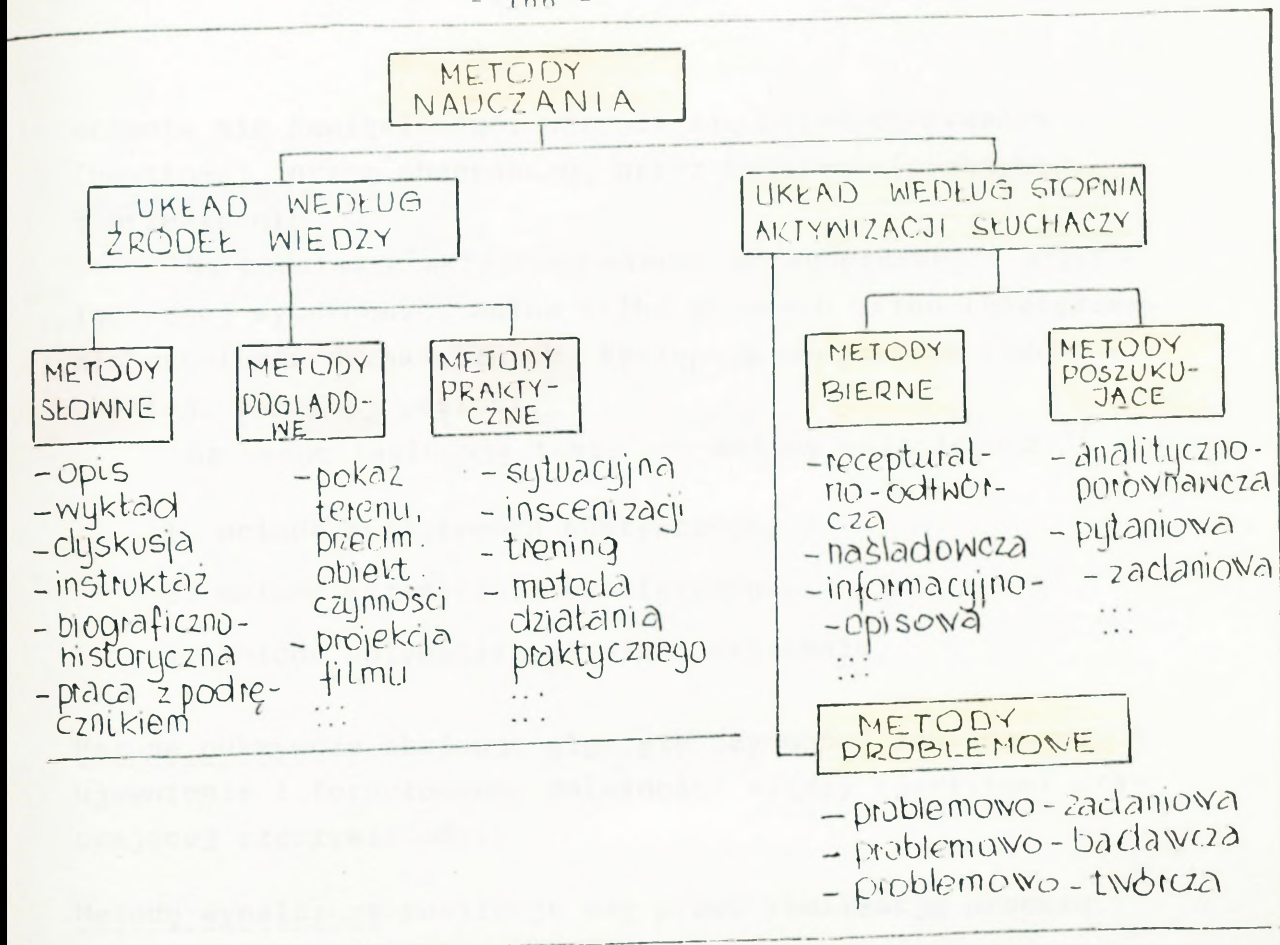 METODY
NAUCZANIA
UKŁAD WEDŁUG
ŹRÓDEŁ WIEDZY
METODY
SŁOWNE
- opis
- wykład
- dyskusja
- instruktaż
- biograficzno-
historyczna
- praca z podrę-
cznikiem
METODY
POGLĄDO-
WE
- pokaz
terenu,
przedm.
obiekt.
czynności
- projekcja
filmu
...
METODY
PRAKTY-
CZNE
- sytuacyjna
- inscenizacji
- trening
- metoda
działania
praktycznego
...
UKŁAD WEDŁUG STOPNIA
AKTYWIZACJI SŁUCHACZY
METODY
BIERNE
- receptural-
no-odtwór-
cza
- naśladowcza
- informacyjno-
- opisowa
...
METODY
POSZUKU-
JĄCE
- analityczno-
porównawcza
- pytaniowa
- zadaniowa
...
METODY
PROBLEMOWE
- problemowo-zadaniowa
- problemowo-badawcza
- problemowo-twórcza